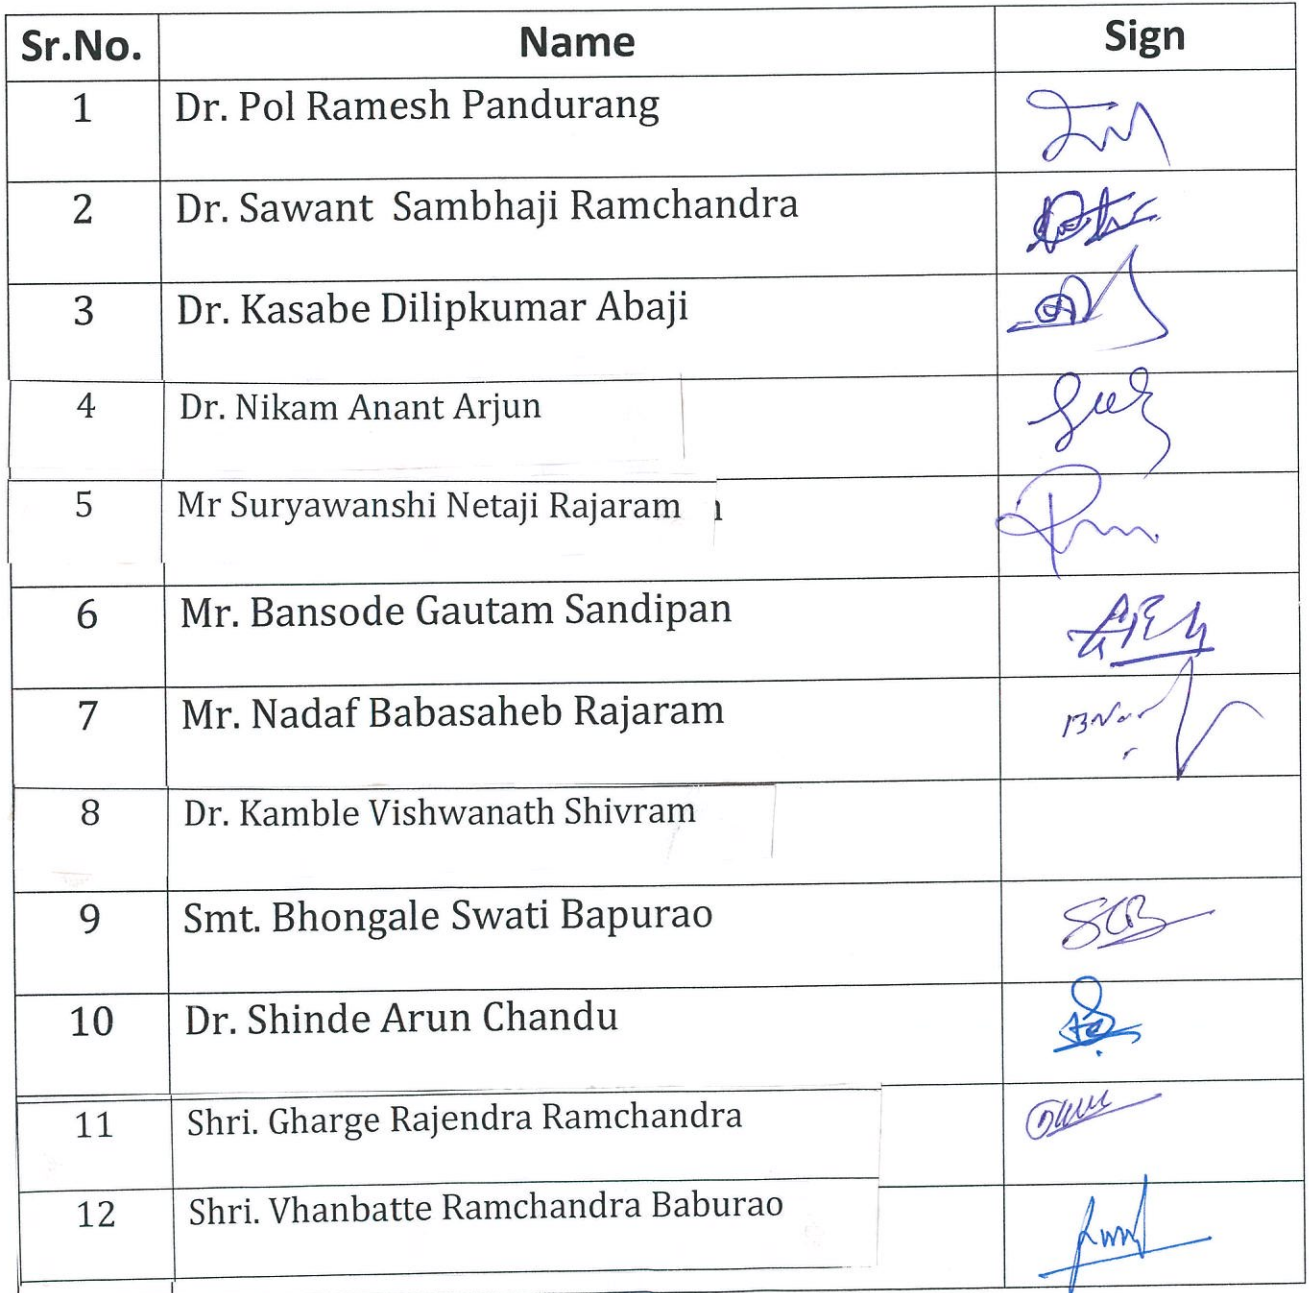 Sr.No. Name Sign
1 Dr. Pol Ramesh Pandurang
2 Dr. Sawant Sambhaji Ramchandra
3 Dr. Kasabe Dilipkumar Abaji
4 Dr. Nikam Anant Arjun
5 Mr Suryawanshi Netaji Rajaram
6 Mr. Bansode Gautam Sandipan
7 Mr. Nadaf Babasaheb Rajaram
8 Dr. Kamble Vishwanath Shivram
9 Smt. Bhongale Swati Bapurao
10 Dr. Shinde Arun Chandu
11 Shri. Gharge Rajendra Ramchandra
12 Shri. Vhanbatte Ramchandra Baburao